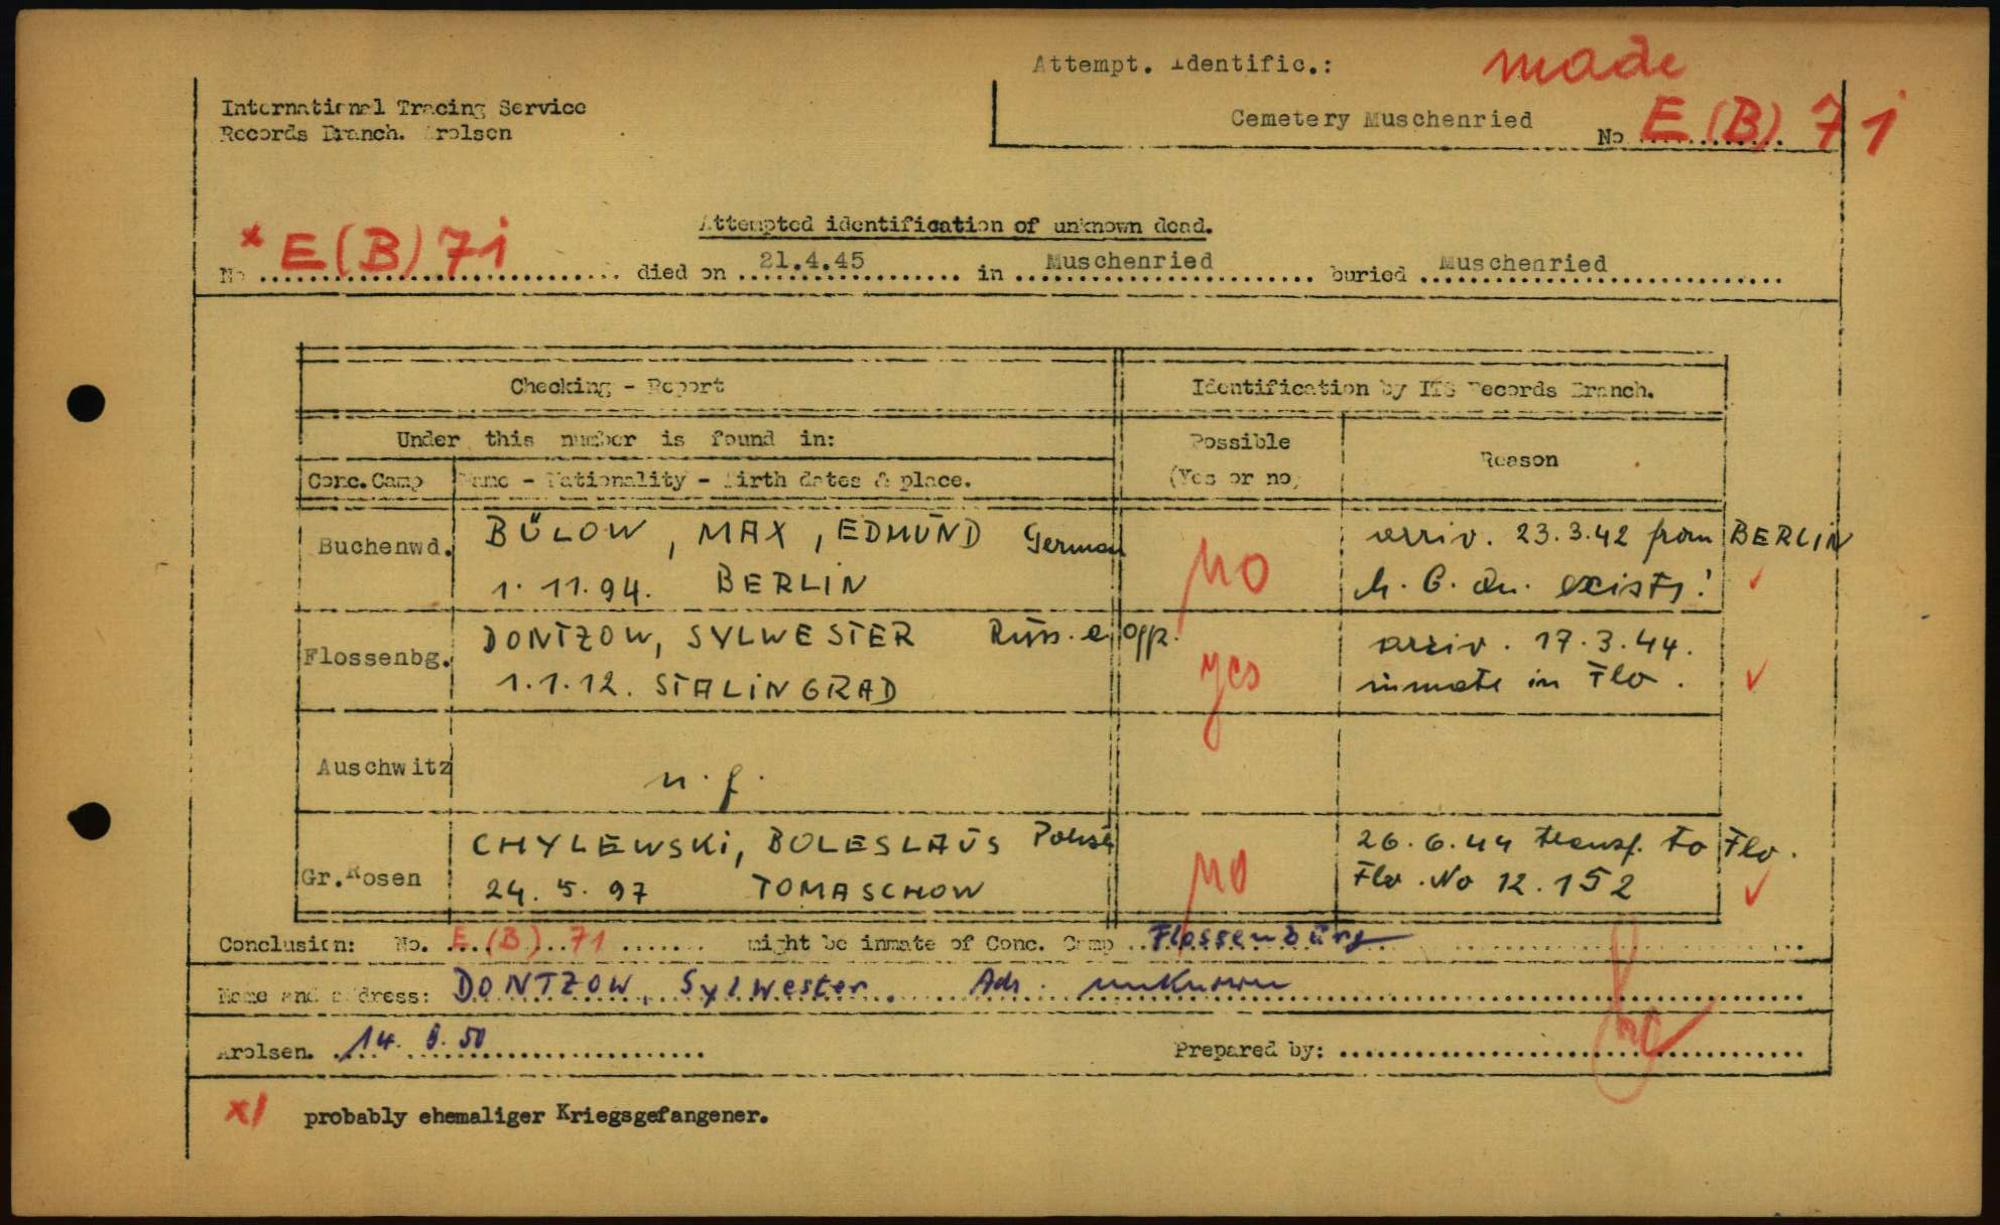 Attempt. Identific.: made
International Tracing Service
Records Branch. Arolsen
Cemetery Muschenried
No E(B) 71
Attempted identification of unknown dead.
x No E(B) 71 died on 21.4.45 in Muschenried buried Muschenried
Checking - Report
Identification by ITS Records Branch.
Under this number is found in:
Possible
(Yes or no)
Reason
Conc. Camp Name - Nationality - Birth dates & place.
Buchenwd. BÜLOW, MAX, EDMUND German no arriv. 23.3.42 from BERLIN
1.11.94. BERLIN exists!
Flossenbg. DONTZOW, SYLWESTER yes arriv. 17.3.44.
1.1.12. STALINGRAD inmate in Flo.
Auschwitz n.f.
Gr.Rosen CHYLEWSKI, BOLESLAUS no 26.6.44 transf. to Flo.
24.5.97 TOMASCHOW Flo. No 12.152
Conclusion: No. E(B) 71 might be inmate of Conc. Camp Flossenbürg
Name and address: DONTZOW, Sylwester. Adr. unknown
Arolsen. 14. 50 Prepared by:
x) probably ehemaliger Kriegsgefangener.